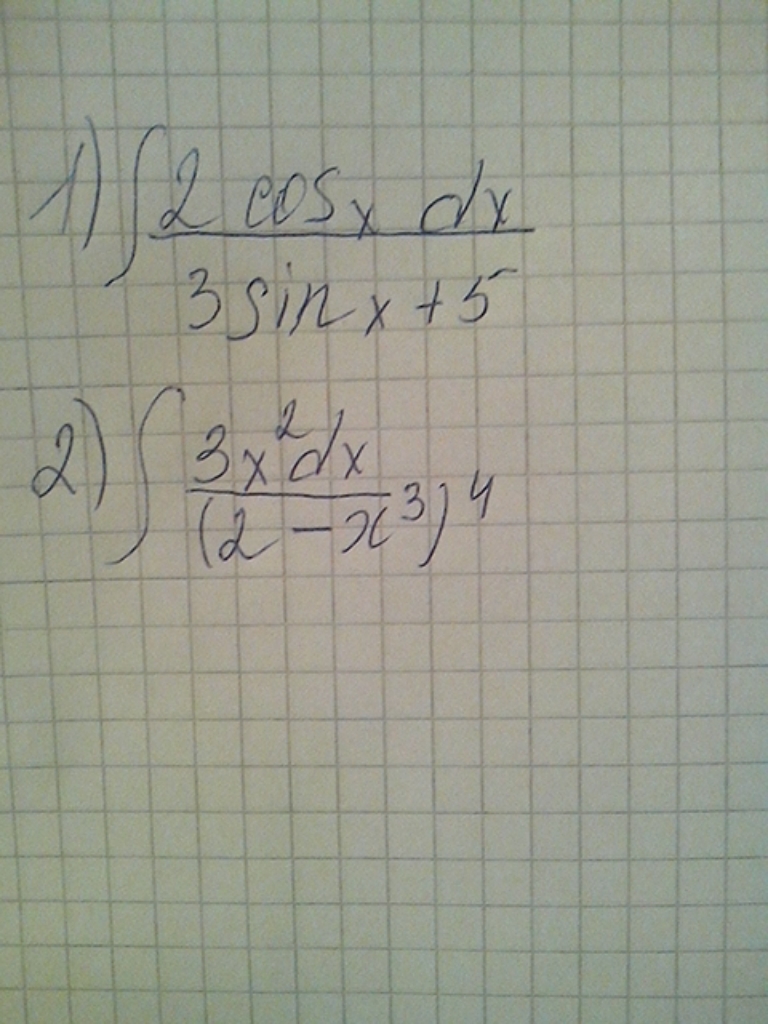 1) ∫ 2 cos x dx
3 sin x + 5
2) ∫ 3x² dx
(2 - x³)⁴